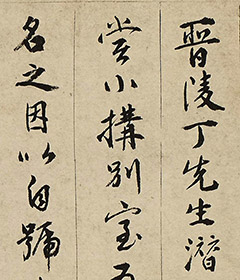 晉陵丁先生潛
嘗小搆別室
名之因以自號